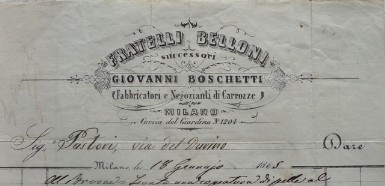 FRATELLI BELLONI
successori
GIOVANNI BOSCHETTI
(Fabbricatori e Negozianti di Carrozze)
MILANO
Corsia del Giardino N. 1204
Sig. Pastori, via del Durino Dare
Milano, 18 Gennajo 1865
Al Brovea